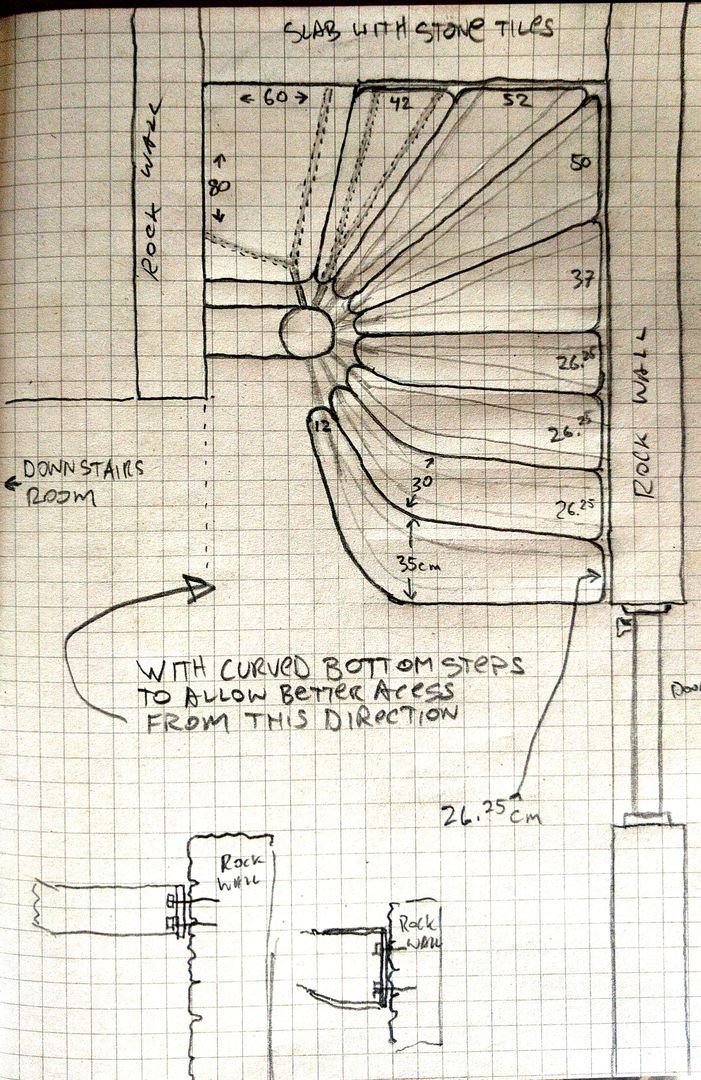 SLAB WITH STONE TILES
ROCK WALL
← 60 →
42
52
80
50
37
26.25
26.25
26.25
12
30
35cm
ROCK WALL
← DOWNSTAIRS
ROOM
WITH CURVED BOTTOM STEPS
TO ALLOW BETTER ACESS
FROM THIS DIRECTION
26.25cm
ROCK
WALL
ROCK
WALL